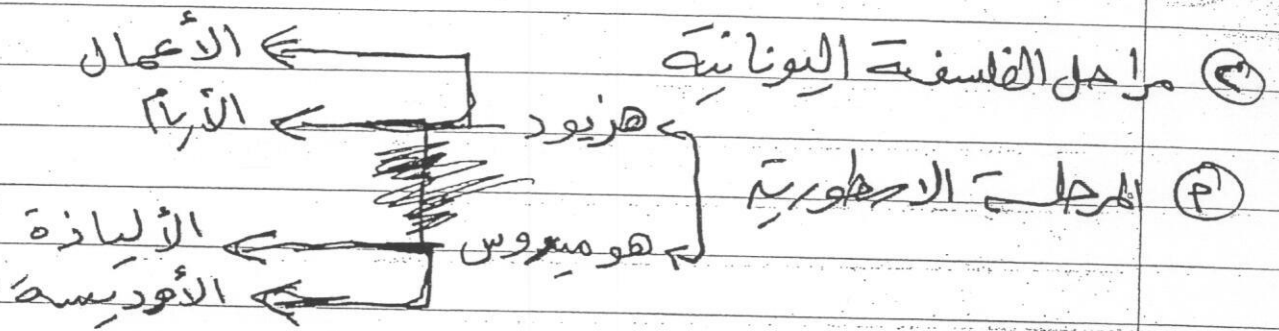 ② مراحل الفلسفة اليونانية
أ) المرحلة الاسطورية
هزيود
الأعمال
الأيام
هوميروس
الألياذة
الأوديسة